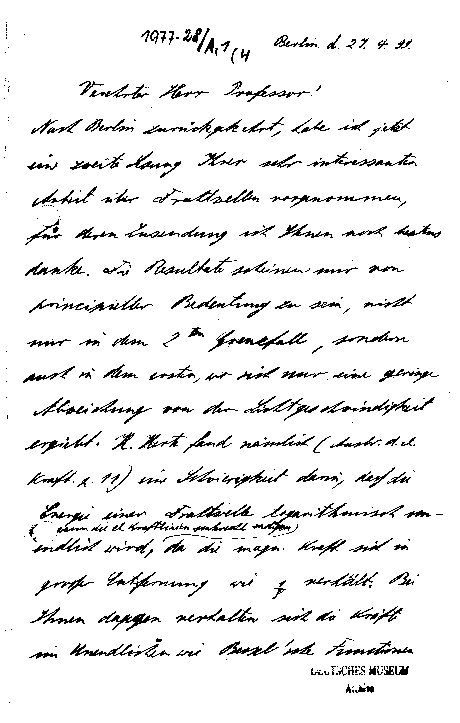 1977-28/A,1(4
Berlin d. 27. 4. 99.
Verehrter Herr Professor!
Nach Berlin zurückgekehrt, habe ich jetzt
eine zweite Lesung Ihrer sehr interessanten
Arbeit über Drahtwellen vorgenommen,
für deren Zusendung ich Ihnen noch bestens
danke. Die Resultate scheinen mir von
principieller Bedeutung zu sein, nicht
nur in dem 2ten Grenzfall, sondern
auch in dem ersten, wo sich nur eine geringe
Abweichung von der Lichtgeschwindigkeit
ergiebt. H. Hertz fand nämlich (Ausbr. d. el.
Kraft. p. 11) eine Schwierigkeit darin, daß die
Energie einer Drahtwelle logarithmisch un-
(wenn die el. Kraftlinien senkrecht
endlich wird, da die magn. Kraft sich in
großer Entfernung wie 1/ρ verhält. Bei
Ihnen dagegen verhalten sich die Kräfte
im Unendlichen wie Bessel'sche Functionen
DEUTSCHES MUSEUM
Archiv